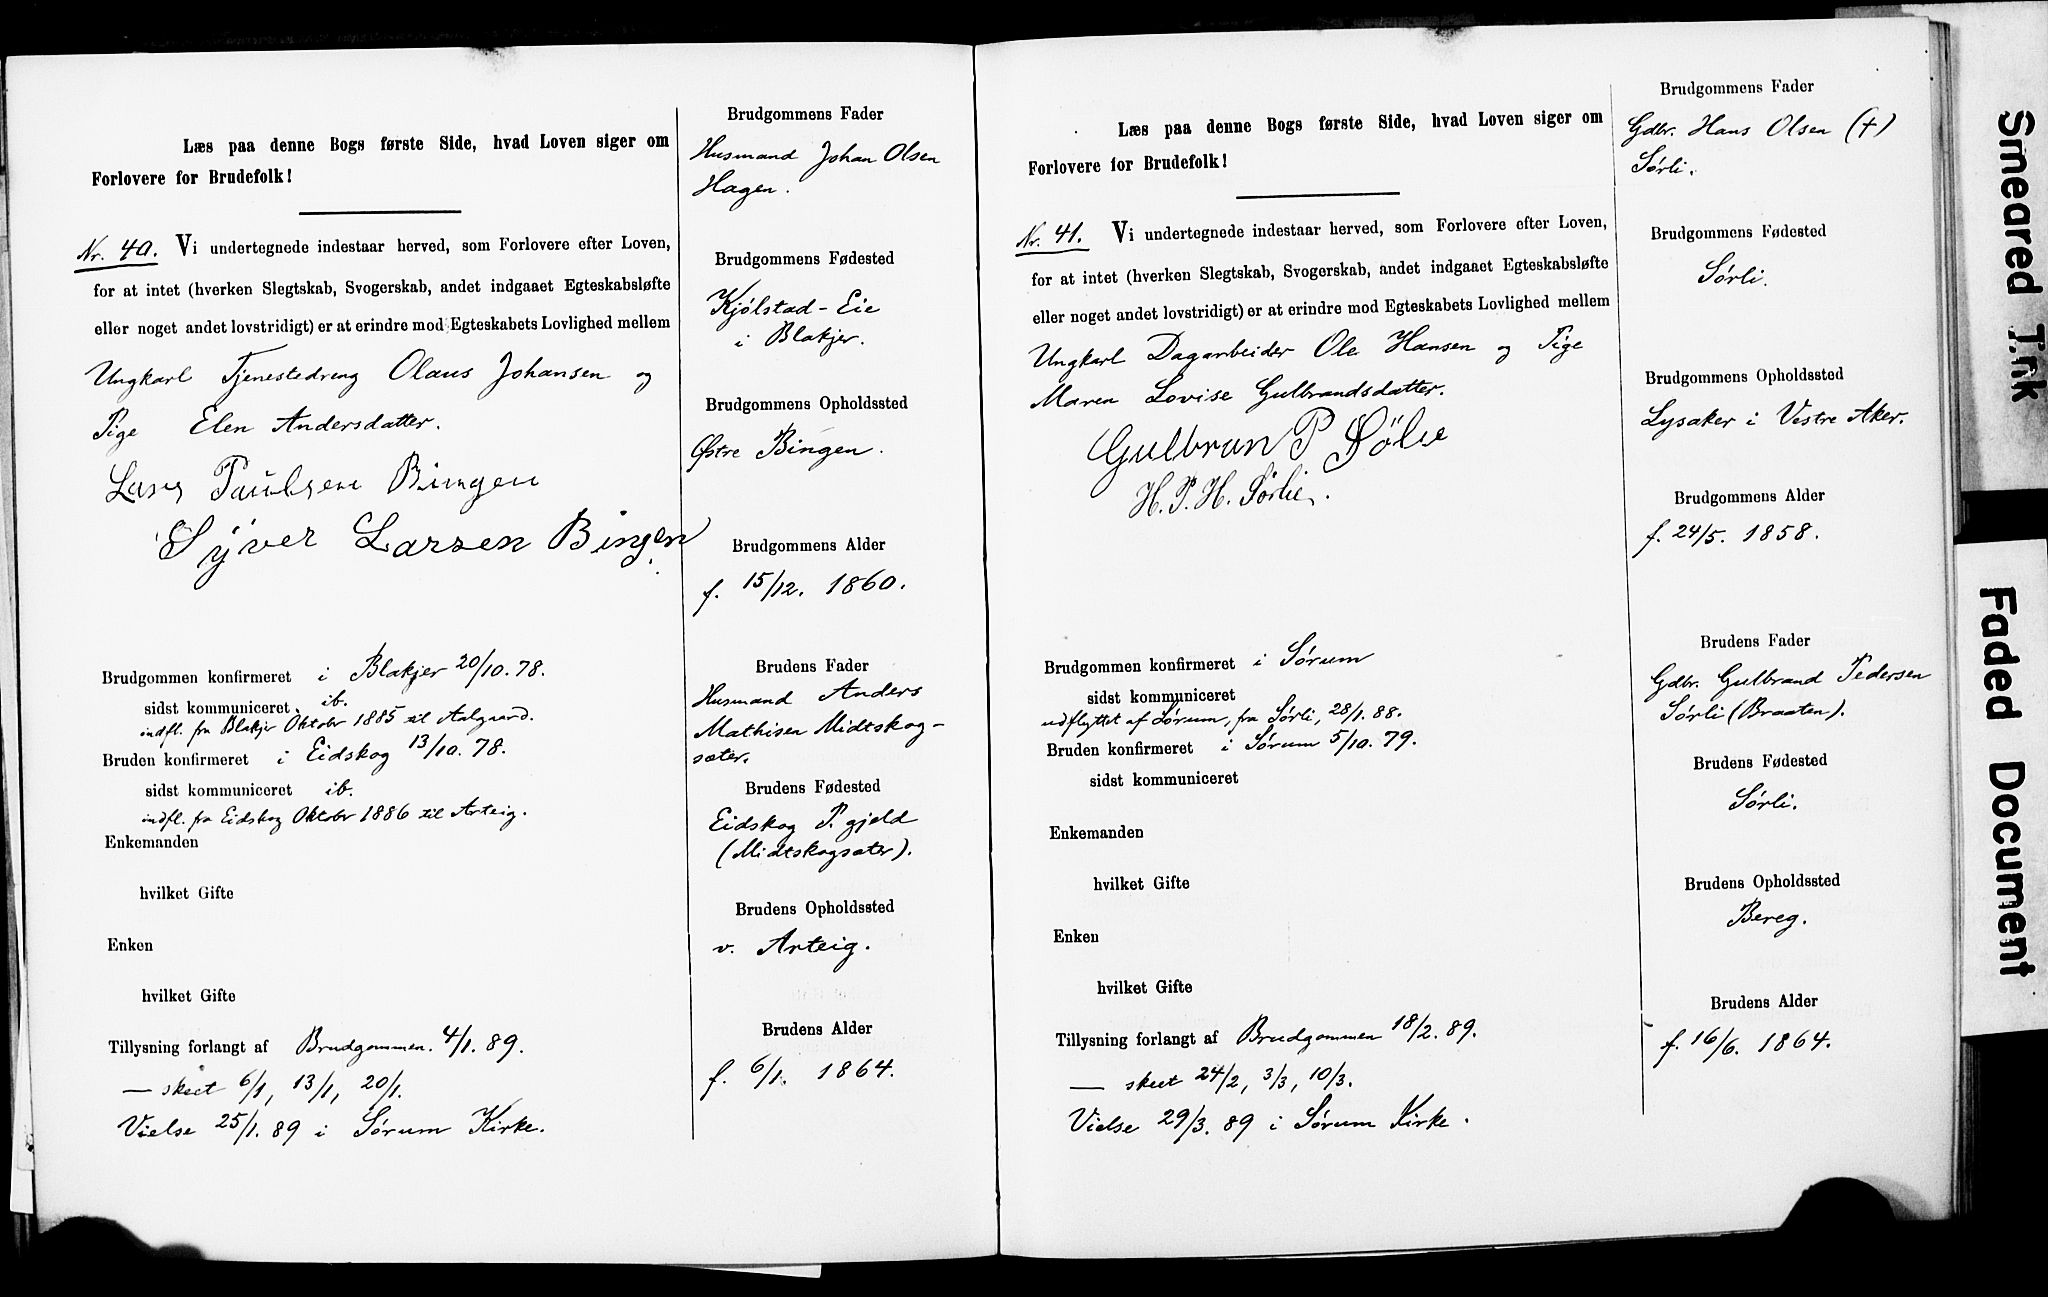 Læs paa denne Bogs første Side, hvad Loven siger om
Forlovere for Brudefolk!
Nr. 40. Vi undertegnede indestaar herved, som Forlovere efter Loven,
for at intet (hverken Slegtskab, Svogerskab, andet indgaaet Egteskabsløfte
eller noget andet lovstridigt) er at erindre mod Egteskabets Lovlighed mellem
Ungkarl Tjenestedreng Olaus Johansen og
Pige Elen Andersdatter.
Lars Paulsen Bingen
Syver Larsen Bingen.
Brudgommen konfirmeret i Blakjer 20/10. 78.
sidst kommuniceret ib.
indfl. fra Blakjer Oktobr 1885 til Aalgaard.
Bruden konfirmeret i Eidskog 13/10. 78.
sidst kommuniceret ib.
indfl. fra Eidskog Oktobr 1886 til Arteig.
Enkemanden
hvilket Gifte
Enken
hvilket Gifte
Tillysning forlangt af Brudgommen. 4/1. 89.
— skeet 6/1, 13/1, 20/1.
Vielse 25/1. 89 i Sørum Kirke.
Brudgommens Fader
Husmand Johan Olsen
Hagen.
Brudgommens Fødested
Kjølstad-Eie
i Blakjer.
Brudgommens Opholdssted
Østre Bingen.
Brudgommens Alder
f. 15/12. 1860.
Brudens Fader
Husmand Anders
Mathisen Midtskog-
sæter.
Brudens Fødested
Eidskog P.gjeld
(Midtskogsæter).
Brudens Opholdssted
v. Arteig.
Brudens Alder
f. 6/1. 1864.
Læs paa denne Bogs første Side, hvad Loven siger om
Forlovere for Brudefolk!
Nr. 41. Vi undertegnede indestaar herved, som Forlovere efter Loven,
for at intet (hverken Slegtskab, Svogerskab, andet indgaaet Egteskabsløfte
eller noget andet lovstridigt) er at erindre mod Egteskabets Lovlighed mellem
Ungkarl Dagarbeider Ole Hansen og Pige
Maren Lovise Gulbrandsdatter.
Gulbran P Sölie
H. P. H. Sørlie.
Brudgommen konfirmeret i Sørum
sidst kommuniceret
udflyttet af Sørum, fra Sørli, 28/1. 88.
Bruden konfirmeret i Sørum 5/10. 79.
sidst kommuniceret
Enkemanden
hvilket Gifte
Enken
hvilket Gifte
Tillysning forlangt af Brudgommen 18/2. 89.
— skeet 24/2, 3/3, 10/3.
Vielse 29/3. 89 i Sørum Kirke.
Brudgommens Fader
Gdbr. Hans Olsen (+)
Sørli.
Brudgommens Fødested
Sørli.
Brudgommens Opholdssted
Lysaker i Vestre Aker.
Brudgommens Alder
f. 24/5. 1858.
Brudens Fader
Gdbr. Gulbrand Pedersen
Sørli (Braaten).
Brudens Fødested
Sørli.
Brudens Opholdssted
Bereg.
Brudens Alder
f. 16/6. 1864.
Smeared Ink
Faded Document